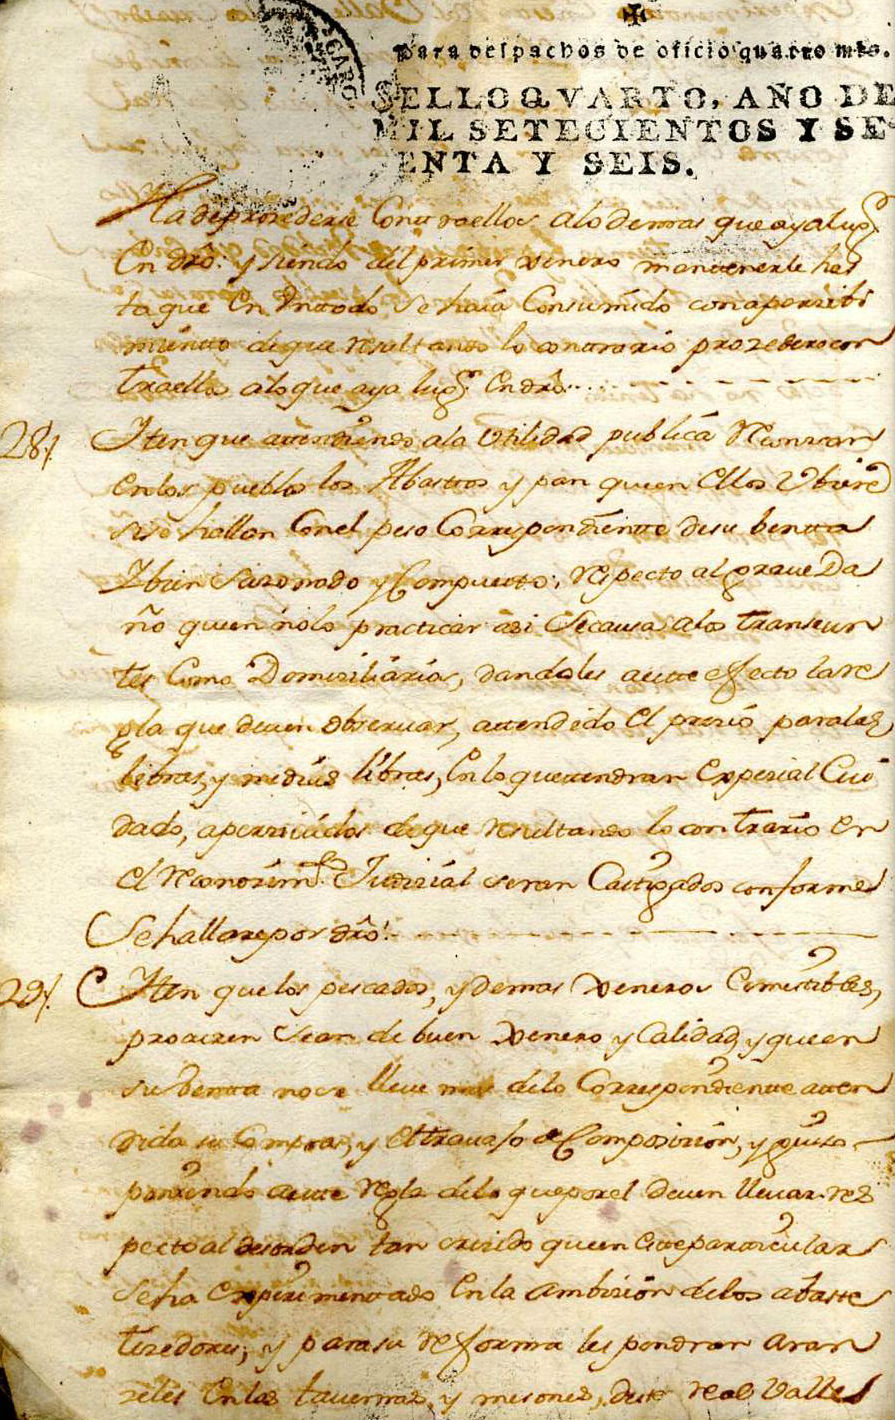 Para despachos de oficio quatro mrs.
SELLO QVARTO, AÑO DE
MIL SETECIENTOS Y SE-
ENTA Y SEIS.
Ha de prozederse Contra ellos alo demas que aya lugr.
En dro. y siendo del primer xenero mantenerle has
ta que En Un todo se haia Consumido con aperzibi
miento de que resultando lo contrario prozedero con
tra ellos alo que aya lugr. En dro.
28/ Iten que attendiendo ala Utilidad publica Reconozcan
en los pueblos los Abastos y pan que en Ellos Ubiere
si se hallan Con el peso Correspondiente de su bentta
Y bien sazonado y Compuesto, respecto al grave Da
ño que en no lo practicar asi se causa a los transeun
tes Como Domiziliarios, dandoles a este effecto la re
gla que deven observar, attendido el prezio para las
libras, y medias libras, En lo que tendran Expezial Cui
dado, aperzividos de que resultando lo contrario en
el reconozimto. Judizial seran Castigados conforme
Se hallare por dro.
29/. Iten que los pescados, y demas xeneros Comestibles,
procuren sean de buen xenero y Calidad, y que en
su bentta no se lleve mas de lo Correspondiente atten
dida su Compra, y el travajo de Composizion, y guiso
poniendo a este regla de lo que por el deven llevar res
pecto al desorden tan crezido que en este particular
se ha Experimentado En la ambizion de los abaste
zedores, y para su reforma les pondran aran
zeles En las tavernas, y mesones, deste real Valle